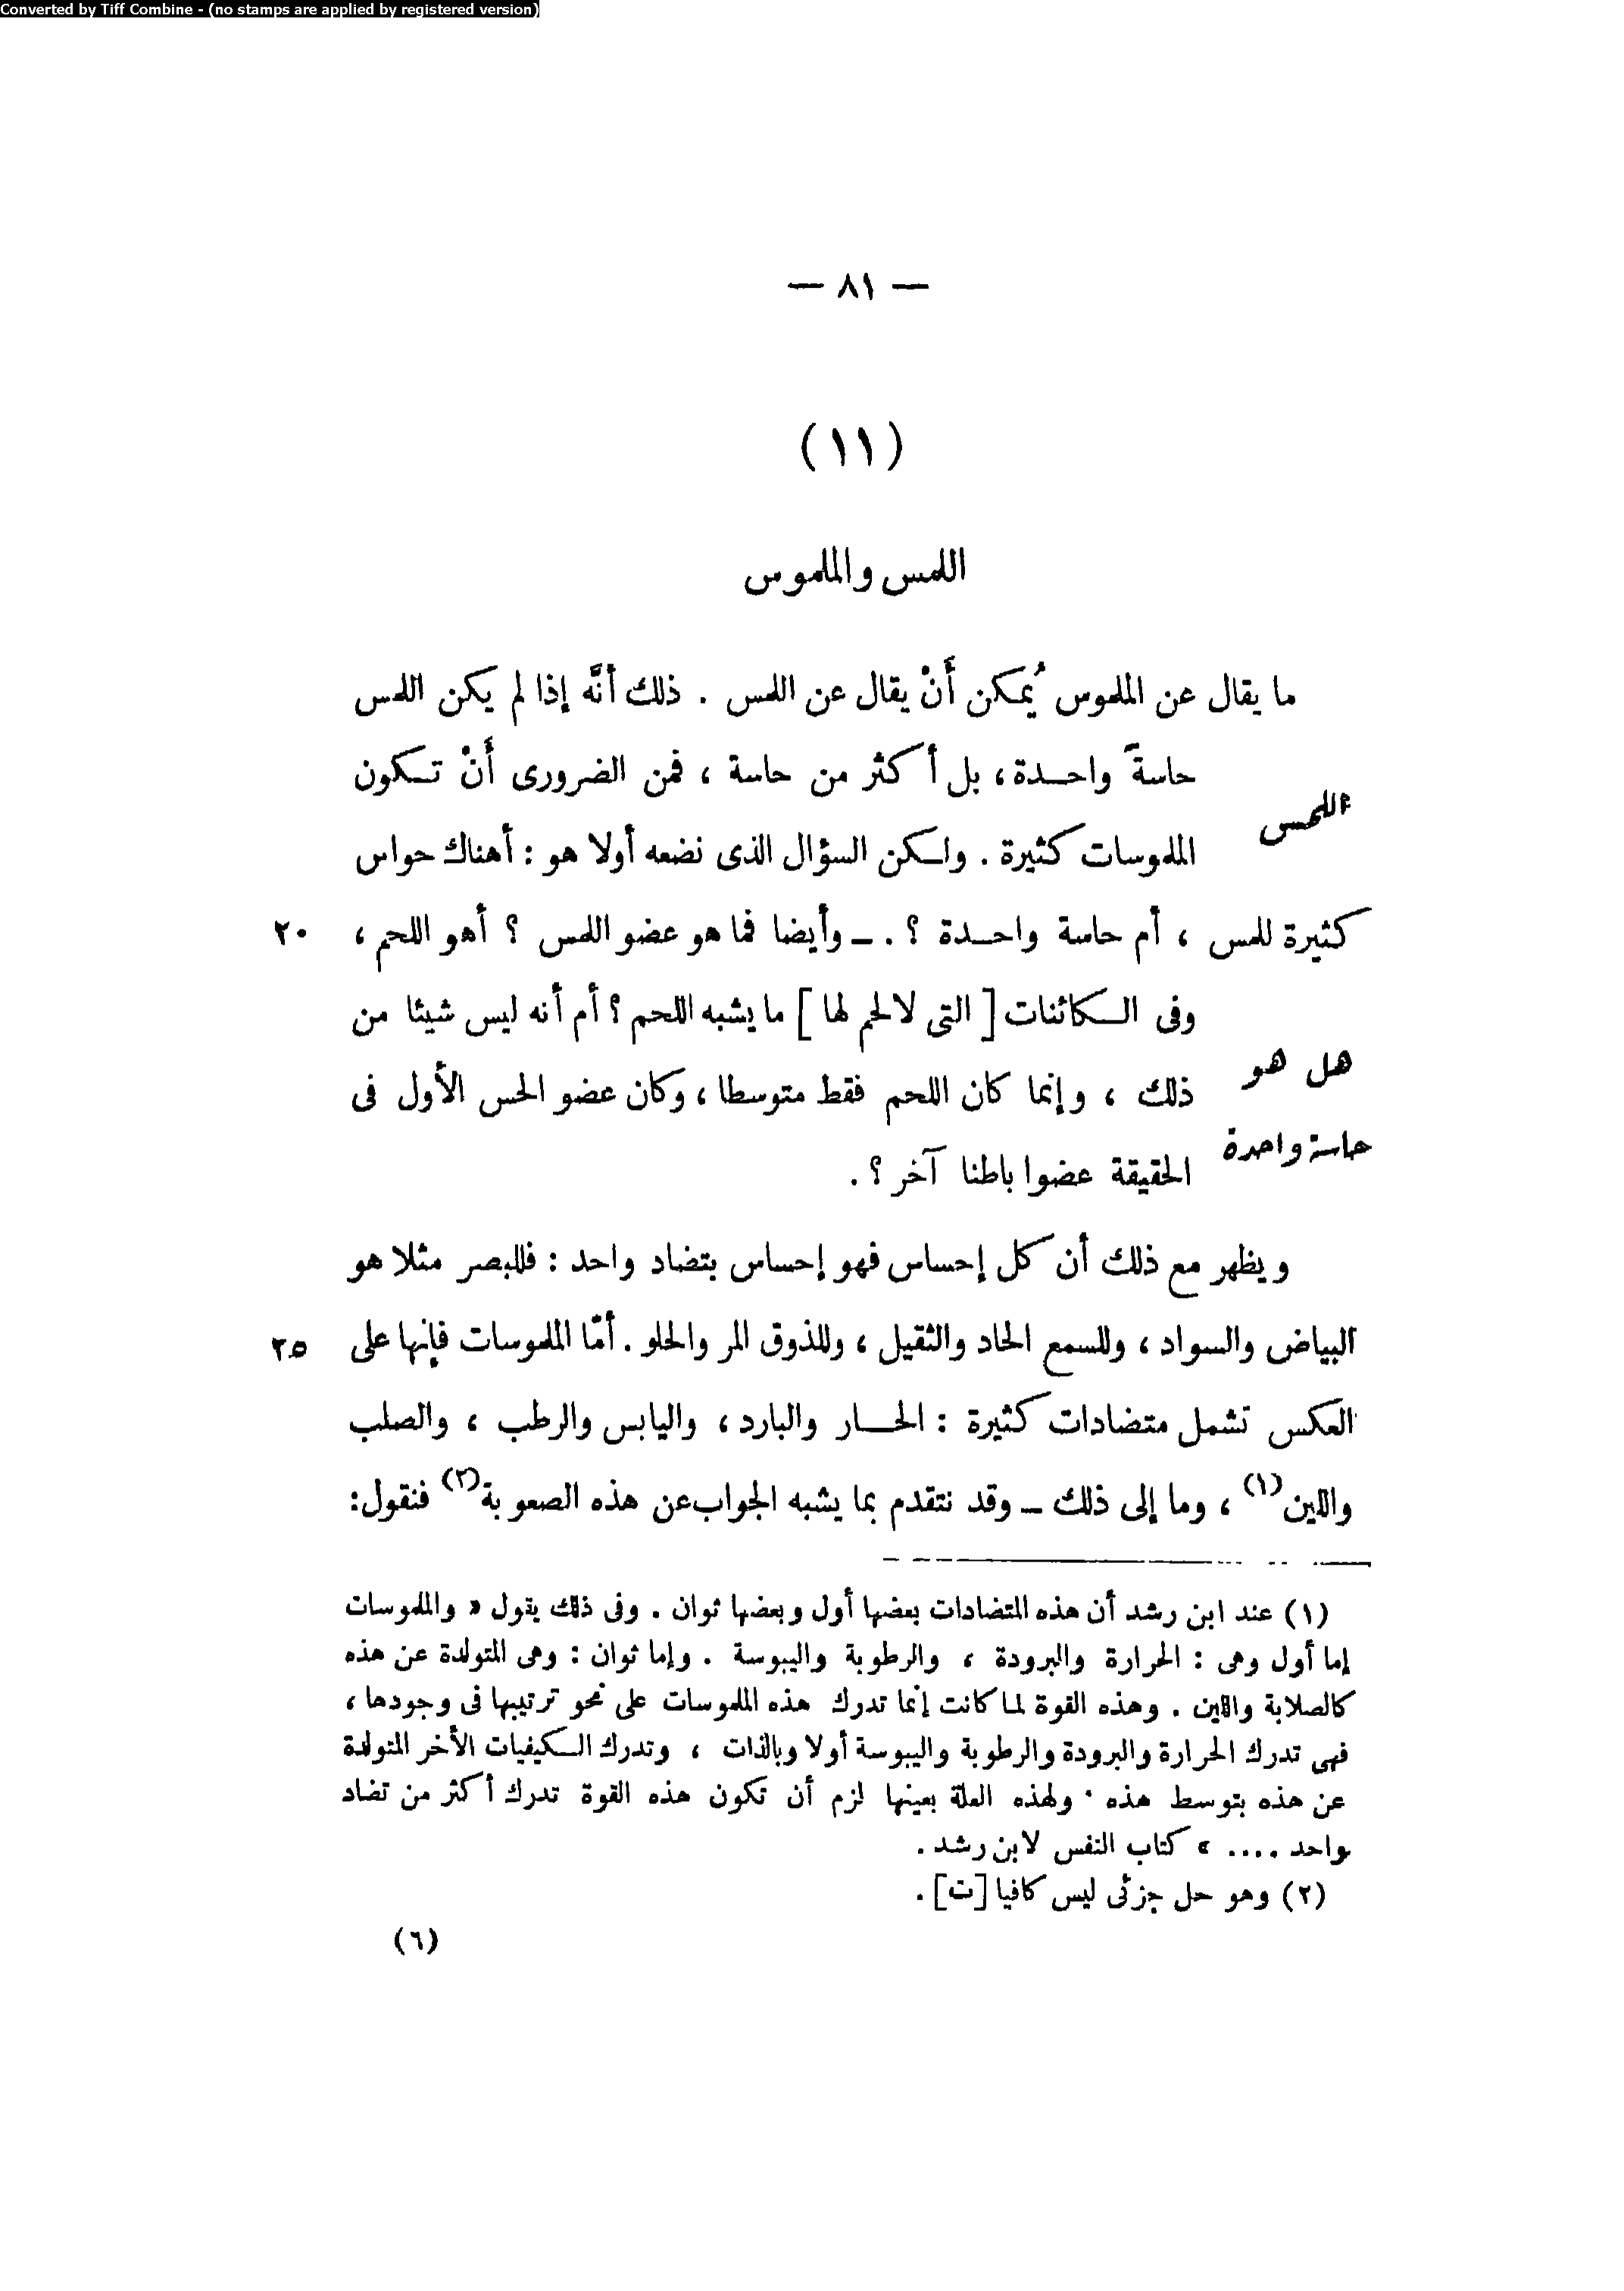 Converted by Tiff Combine - (no stamps are applied by registered version)
— ٨١ —
(١١)
اللمس والملموس
ما يقال عن الملموس يُمكن أَنْ يقال عن اللمس . ذلك أنَّه إذا لم يكن اللمس
حاسةً واحدة ، بل أكثر من حاسة ، فمن الضرورى أَنْ تكون
اللمس
الملموسات كثيرة . ولكن السؤال الذى نضعه أولا هو : أهناك حواس
كثيرة للمس ، أم حاسة واحدة ؟ . — وأيضا فما هو عضو اللمس ؟ أهو اللحم ،
٢٠
وفى الكائنات [ التى لا لحم لها ] ما يشبه اللحم ؟ أم أنه ليس شيئا من
هل هو
ذلك ، وإنما كان اللحم فقط متوسطا ، وكان عضو الحس الأول فى
حاسة واحدة
الحقيقة عضوا باطنا آخر ؟ .
ويظهر مع ذلك أن كل إحساس فهو إحساس بتضاد واحد : فللبصر مثلا هو
البياض والسواد ، وللسمع الحاد والثقيل ، وللذوق المر والحلو . أمّا الملموسات فإنها على
٢٥
العكس تشمل متضادات كثيرة : الحار والبارد ، واليابس والرطب ، والصلب
واللين(١) ، وما إلى ذلك — وقد نتقدم بما يشبه الجواب عن هذه الصعوبة(٢) فنقول :
(١) عند ابن رشد أن هذه المتضادات بعضها أول وبعضها ثوان . وفى ذلك يقول « والملموسات
إما أول وهى : الحرارة والبرودة ، والرطوبة واليبوسة . وإما ثوان : وهى المتولدة عن هذه
كالصلابة واللين . وهذه القوة لما كانت إنما تدرك هذه الملموسات على نحو ترتيبها فى وجودها ،
فهى تدرك الحرارة والبرودة والرطوبة واليبوسة أولا وبالذات ، وتدرك الكيفيات الأخر المتولدة
عن هذه بتوسط هذه . ولهذه العلة بعينها لزم أن تكون هذه القوة تدرك أكثر من تضاد
واحد .... » كتاب النفس لابن رشد .
(٢) وهو حل جزئى ليس كافيا [ت] .
(٦)